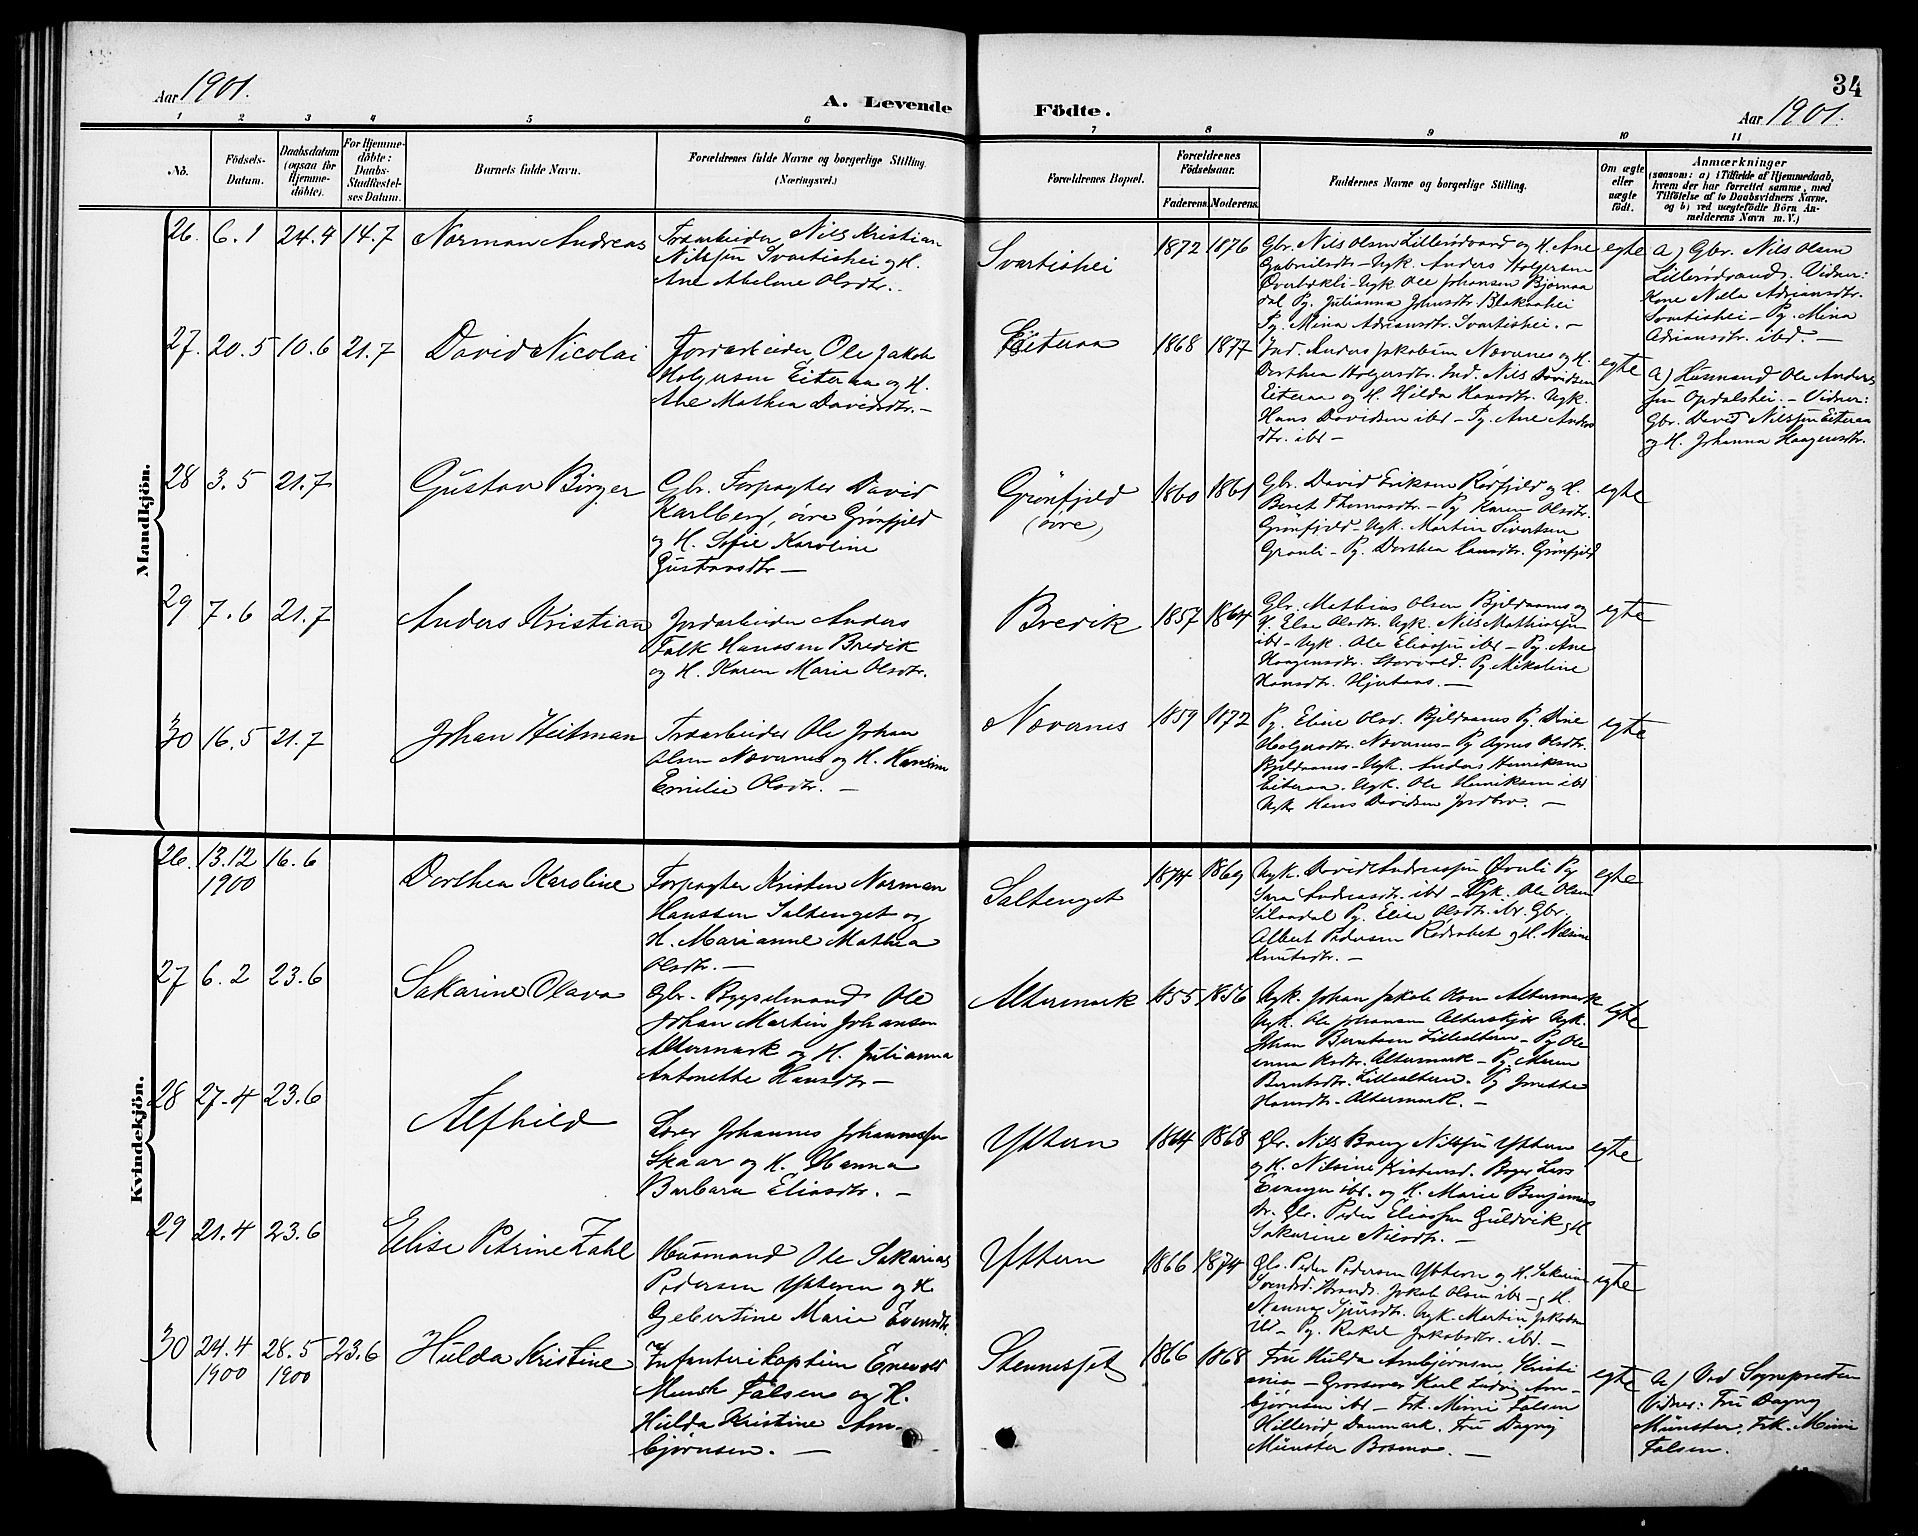 Aar 1901.
A. Levende
Födte.
34
Aar 1901.
1 2 3 4 5 6 7 8 9 10 11
No.
Födsels-
Datum.
Daabsdatum
(ogsaa for
Hjemme-
döbte).
For Hjemme-
döbte:
Daabs-
Stadfæstel-
ses Datum.
Barnets fulde Navn.
Forældrenes fulde Navne og borgerlige Stilling.
(Næringsvei.)
Forældrenes Bopæl.
Forældrenes
Födselsaar.
Faderens. Moderens.
Faddernes Navne og borgerlige Stilling.
Om ægte
eller
uægte
födt.
Anmærkninger
(saasom: a) i Tilfælde af Hjemmedaab,
hvem der har forrettet samme, med
Tilföielse af to Daabsvidners Navne,
og b) ved uægtefödte Börn An-
melderens Navn m. V.)
Mandkjön.
26. 6.1 24.4 14.7 Norman Andreas
Nils Kristian
Nilssen Svartishei og H.
Ane Abeline Olsdtr.
Svartishei
1872 1876
Gbr. Nils Olsen Lillerødvand og H. Ane
Gabrielsdtr - Ugk. Anders Holgersen
Øverbækli - Ugk Ole Johansen Bjørnaa
dal Pg. Julianna Johnsdtr. Blakaahei
Pg. Mina Adriansdtr. Svartishei. -
egte
a) Gbr. Nils Olsen
Lillerødvand. Vidner:
Kone Nilla Adriansdtr.
Svartishei - Pg. Mina
Adriansdtr. ibd. -
27. 20.5 10.6 21.7 David Nicolai
Jordarbeider Ole Jakob
Holgersen Eiteraa og H.
Ane Mathea Davidsdtr. -
Eiteraa
1868 1877
Ind. Anders Jakobsen Nævernes og H.
Dorthea Holgersdtr. Ind. Nils Davidsen
Eiteraa og H. Hilda Hansdtr. Ugk.
Hans Davidsen ibd - Pg. Ane Anders
dtr. ibd -
egte
a) Husmand Ole Anders
sen Opdalshei. - Vidner:
Gbr. David Nilssen Eiteraa
og H. Johanna Haagensdtr.
28 3.5 21.7 Gustav Birger
Gbr. Forpagter David
Karlberg, øvre Grønfjeld
og H. Sofie Karoline
Gustavsdtr -
Grønfjeld
(øvre)
1860 1861
Gbr. David Eriksen Rødfjeld og H.
Beret Thomasdtr. - Pg Karen Olsdtr.
Grønfjeld - Ugk. Martin Sivertsen
Granli - Pg. Dorthea Hansdtr. Grønfjeld
egte
29 7.6 21.7 Anders Kristian
Jordarbeider Anders
Falk Hanssen Bredik
og H. Karen Marie Olsdtr.
Bredik
1857 1864
Gbr. Mathias Olsen Bjeldaanes og
H. Else Olsdtr. Ugk. Nils Mathiassen
ibd - Ugk. Ole Eliassen ibd - Pg. Ane
Haagensdtr. Storvold. Pg. Mikaline
Hansdtr. Hjertaas. -
egte
30 16.5 21.7 Johan Heitman
Ole Johan
Olsen Nævernes og H. Hansine
Emilie Olsdtr. -
Nævernes
1859 1872
Pg. Eline Olsd. Bjeldaanes Pg. Stine
Holgersdtr. Nævernes - Pg Agnes Olsdtr.
Bjeldaanes - Ugk. Anders Henriksen
Eiteraa. Ugk. Ole Henriksen ibd
Ugk Hans Davidsen Jordbro. -
egte
Kvindekjön.
26. 13.12 16.6
1900
Dorthea Karoline
Forpagter Kristen Norman
Hanssen Saltenget og
H. Marianne Mathea
Olsdtr. -
Saltenget
1874 1869
Ugk. David Andreassen Øvnli Pg
Sara Andreasdtr. ibd - Ugk. Ole Olsen
Pg. Elise Olsdtr. ibd. Gbr.
Albert Pedersen og H. Nilsine
Knutsdtr. -
egte
27 6.2 23.6 Sakarine Olava
Gbr. Bygselmand Ole
Johan Martin Johansen
Altermark og H. Julianna
Antonette Hansdtr -
Altermark
1855 1856
Ugk. Johan Jakob Olsen Altermark
Ugk. Ole Johansen Alterskjær Ugk.
Johan Berntsen Lillealtern - Pg Ole
anna Altermark - Pg Maren
Berntsdtr. Lillealtern. Pg Jonette
Hansdtr. Altermark. -
egte
28 27.4 23.6 Alfhild
Lærer Johannes Johannessen
Skaar og H. Hanna
Barbara Eliasdtr. -
Yttern
1864 1868
Gbr. Nils Brug Nilssen Yttern
og H. Nilsine Kristensd. Bager Lars
Evanger ibd. og H. Marie Benjamins
dr. Gbr. Peder Eliassen Guldvik og H
Sakarine Nilsdtr. -
egte
29 21.4 23.6 Elise Petrine Zahl
Husmand Ole Sakarias
Pedersen Ytteren og H.
Gjebertine Marie Evensdtr.
Yttern
1866 1874
Gbr. Peder Pedersen Yttern og H. Sakarine
Svendsd. Strands. Jakob Olsen ibd - og H.
Nanna Sjursdtr. Ugk. Martin Jakobsen
ibd - Pg. Rakel Jakobsdtr. ibd. -
egte
30 24.4 28.5 23.6
1900 1900
Hulda Kristine
Infanterikaptein Enevold
Munch Falsen og H.
Hulda Kristine Arn-
bjørnsen. -
Stennesjet
1866 1868
Fru Hulda Arnbjørnsen, Kristi
ania - Grosserer Karl Ludvig Arn-
bjørnsen ibd - Frk. Mimi Falsen
Hillerød, Danmark. Fru Dagny
Münster Bosmo -
egte
a) Ved Sognepresten
Vidner: Fru Dagny
Münster, Frk. Mimi
Falsen.